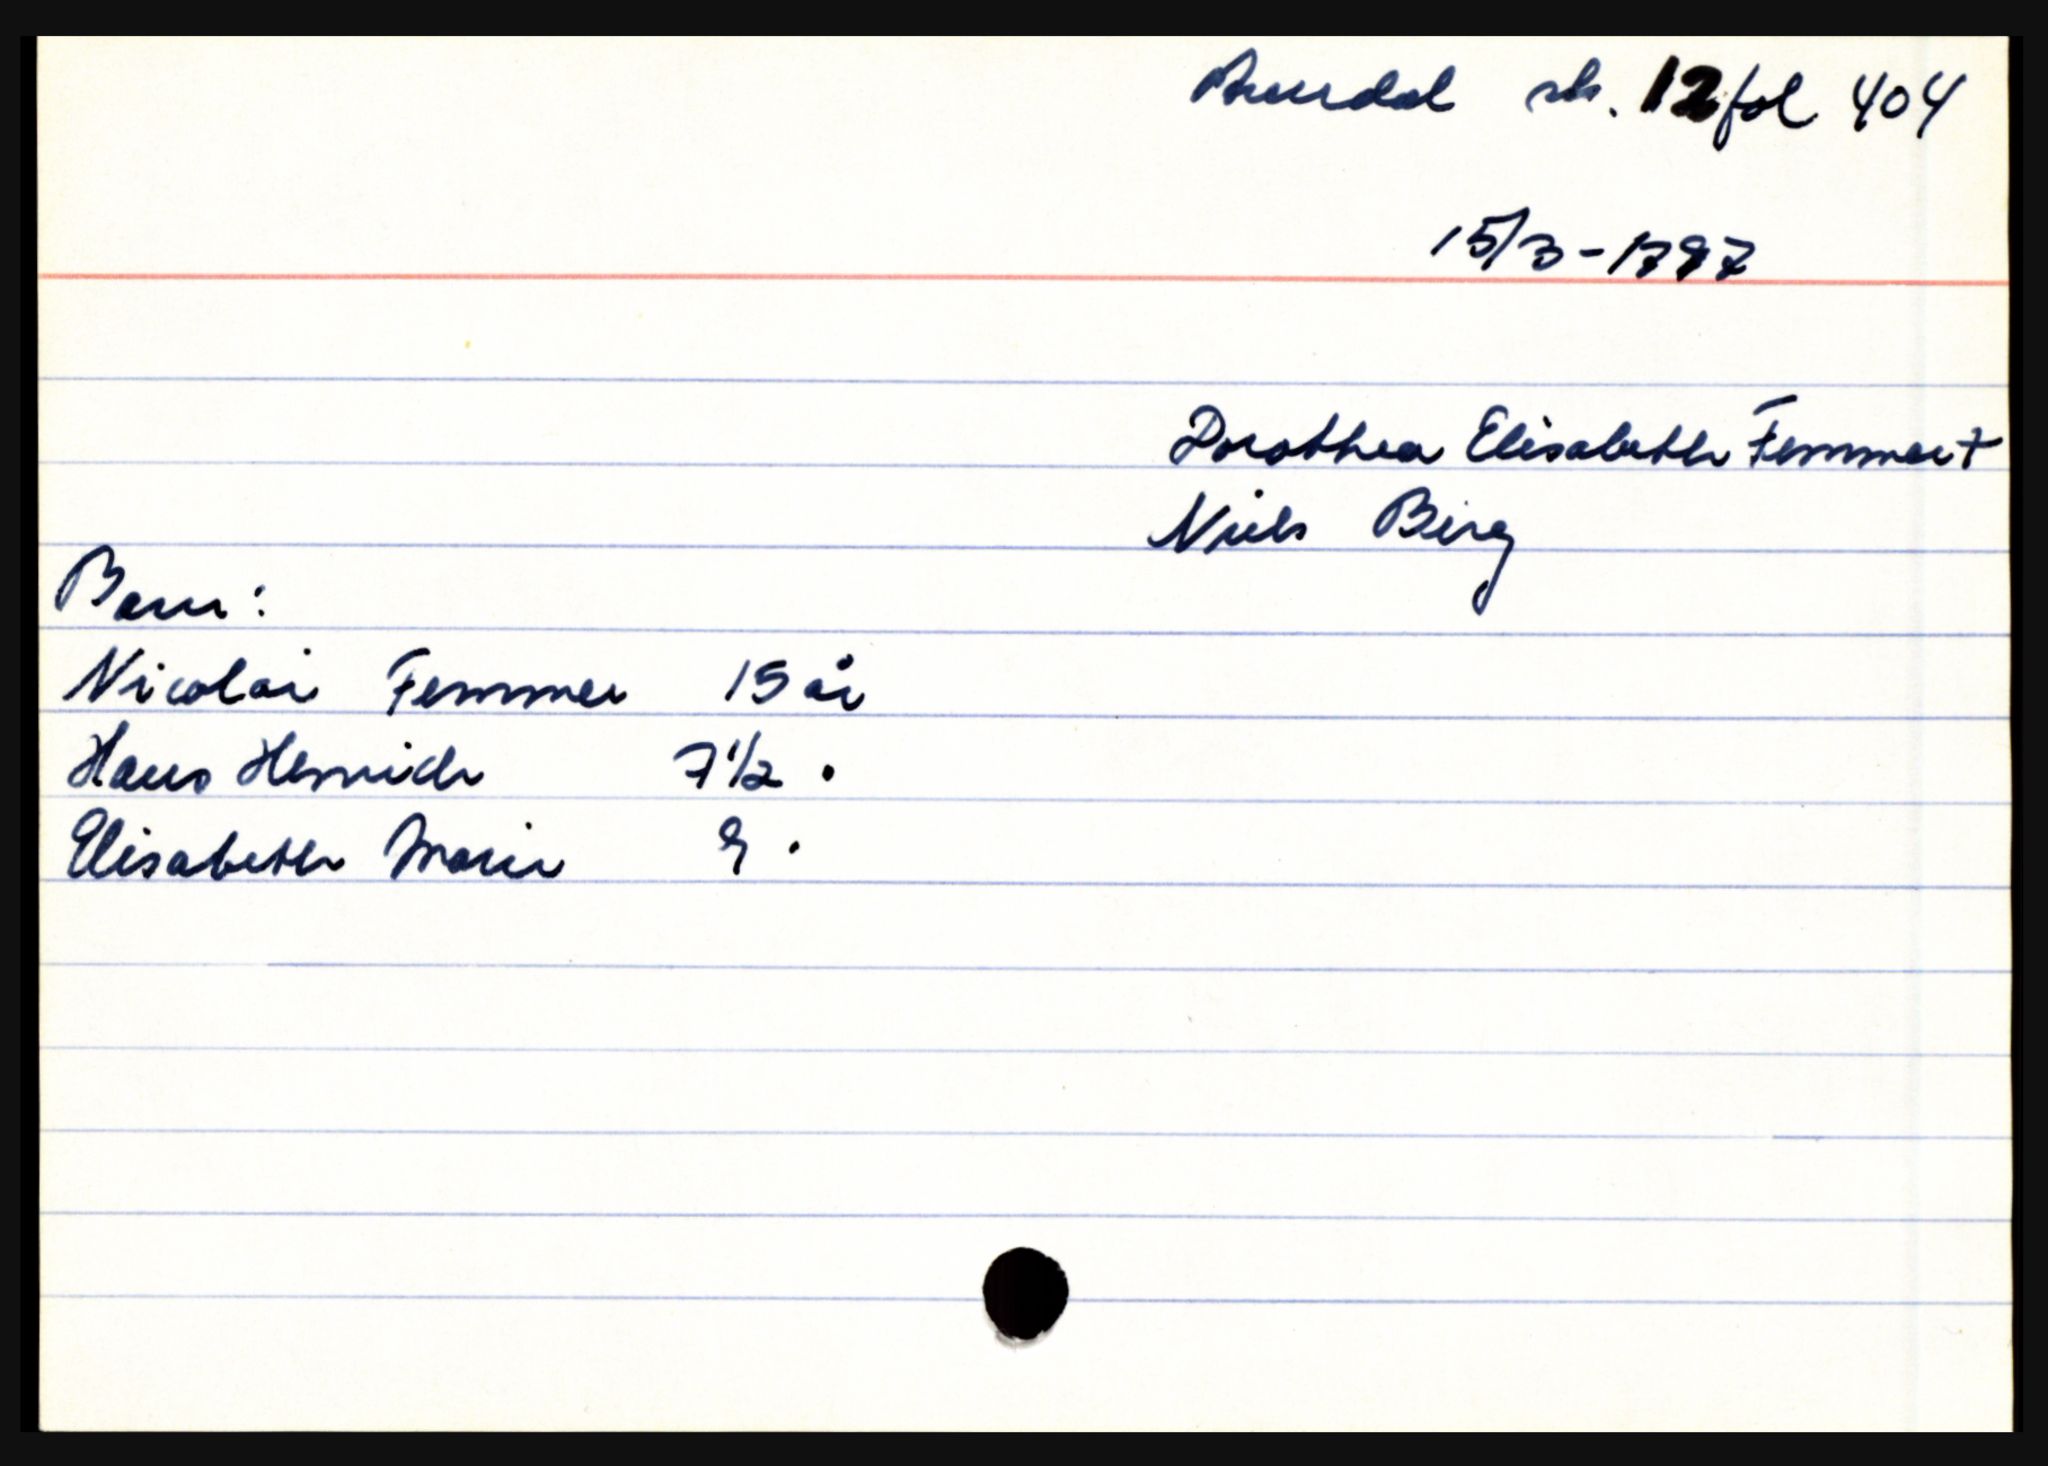 Arendal sk. 12 fol 404
15/3-1797
Dorothea Elisabeth Femmer †
Niels Berg
Barn:
Nicolai Femmer 15 år
Hans Henrich 7 1/2 .
Elisabeth Marie 9 .